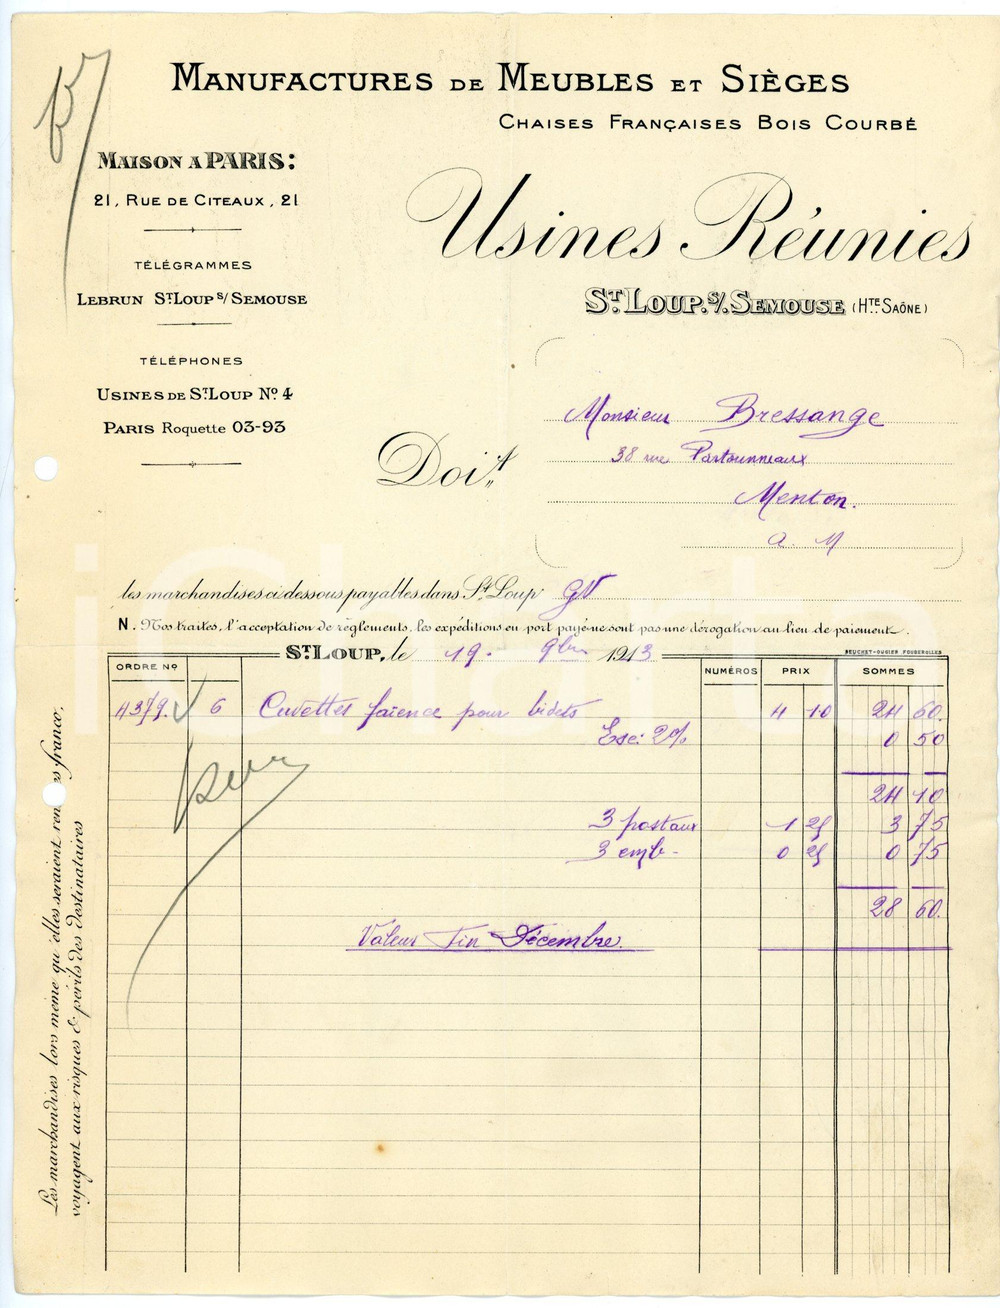 Manufactures de Meubles et Sièges
Chaises Françaises Bois Courbé
Maison a Paris:
21, Rue de Citeaux, 21
Télégrammes
Lebrun St Loup s/ Semouse
Téléphones
Usines de St Loup No 4
Paris Roquette 03-93
Usines Réunies
St Loup s/. Semouse (Hte Saône)
Doit
Monsieur Bressange
38 rue Partounneaux
Menton.
A. M
les marchandises ci dessous payables dans St Loup GV
N. Nos traites, l'acceptation de règlements, les expéditions en port payé ne sont pas une dérogation au lieu de paiement.
St Loup, le 19. 9bre 1913
BEUCHET-OUGIER FOUGEROLLES
Ordre No Numéros Prix Sommes
4379. 6 Cuvettes faïence pour bidets 4 10 24 60.
Esc: 2% 0 50
24 10
3 postaux 1 25 3 75
3 emb- 0 25 0 75
28 60.
Valeur Fin Décembre.
Les marchandises lors même qu'elles seraient rendues franco,
voyagent aux risques & périls des destinataires
iCharta